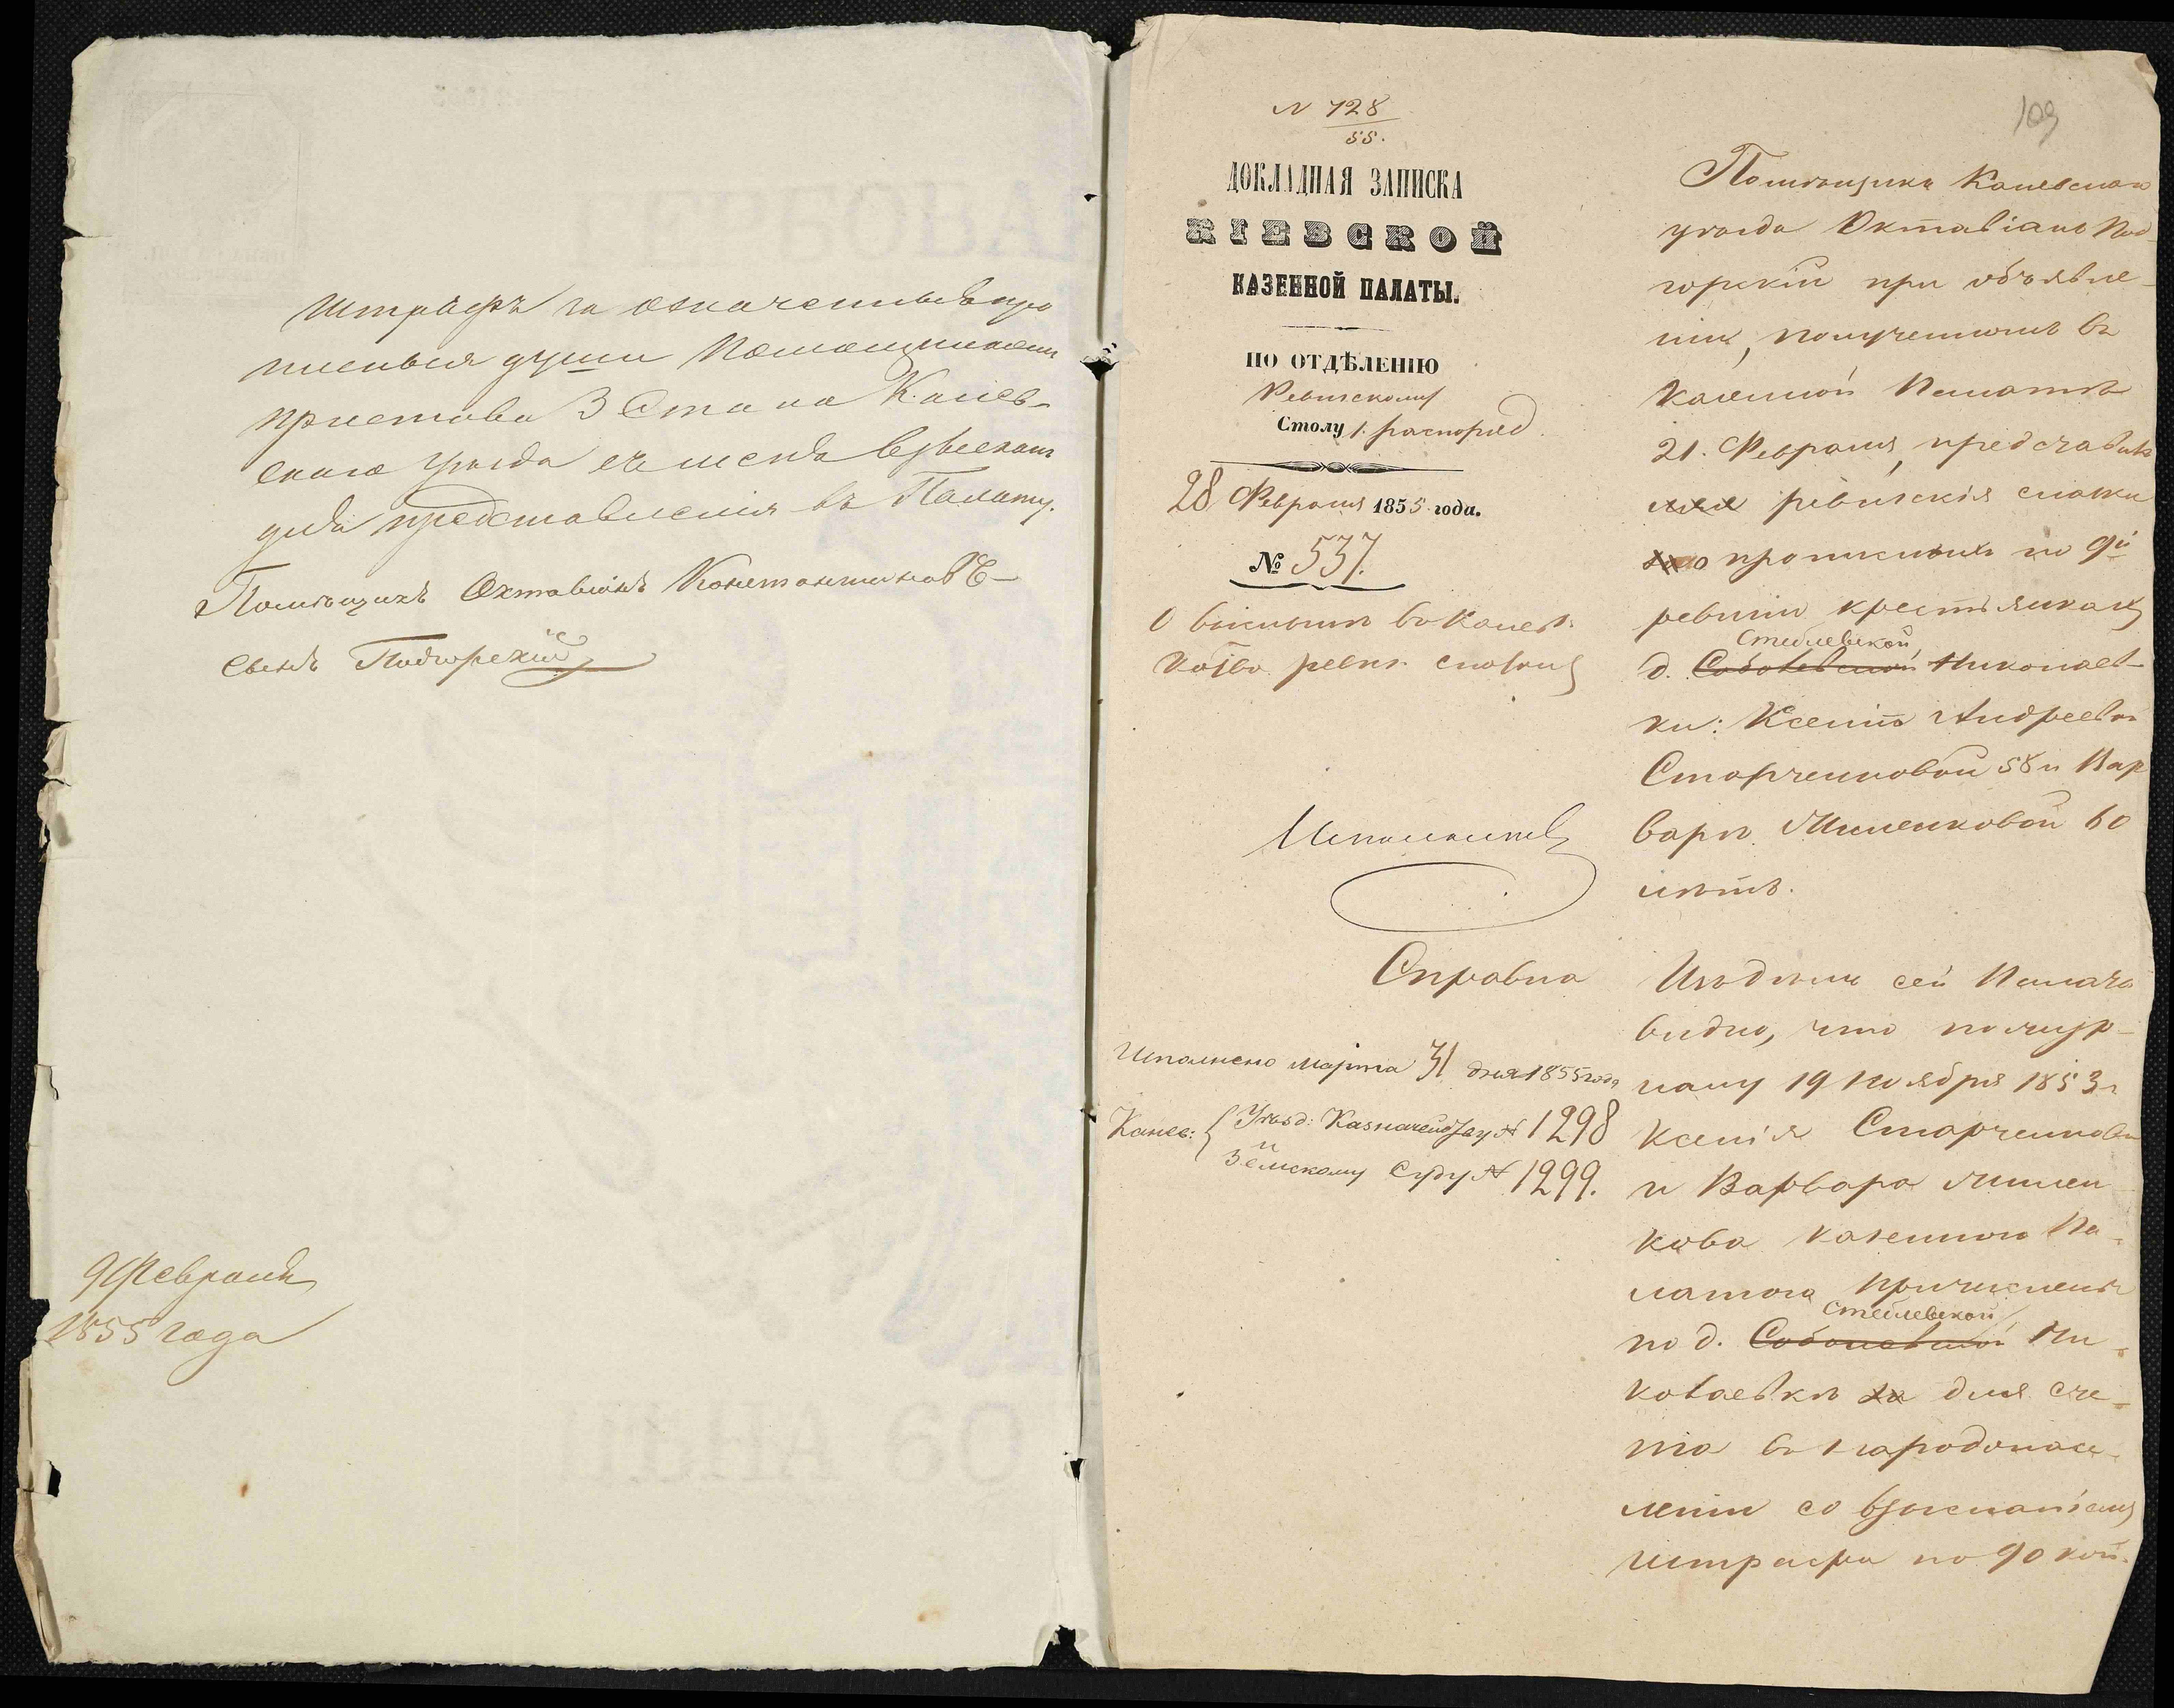 Штрафъ за означенныя про
писныя души Помощникомъ
пристава 3 Стана Канев-
скаго уезда съ меня взысканъ
для представленія въ Палату.
Помѣщикъ Октавіянъ Константиновъ
сынъ Подгорскій
9 Февраля
1855 года
109
N 728
55.
ДОКЛАДНАЯ ЗАПИСКА
КІЕВСКОЙ
КАЗЕННОЙ ПАЛАТЫ.
ПО ОТДѢЛЕНІЮ
Ревизскому
Столу 1. распоряд
28 Февраля 1855 года.
№ 537.
О высылкѣ въ Канев.
ревиз. сказки
Справка
Исполнено марта 31 дня 1855 года
Канев: Уѣзд: Казначейству N 1298
Земскому Суду N 1299.
Помѣщикъ Каневскаго
уѣзда Октавіанъ Под-
горскій при объявле-
ніи, полученномъ въ
Казенной Палатѣ
21. Февраля, представилъ
ревизскія сказки
о прописныхъ по 9й
ревизіи крестьянкахъ
Стеблевской
д. Николаев-
ки: Ксеніи Андреевой
Старченковой 58 и Вар
варѣ Миненковой 60
лѣтъ.
Изъ дѣлъ сей Палаты
видно, что по жур-
налу 19 Ноября 1853 г
Ксенія Старченкова
и Варвара Минен-
кова Казенною Па-
латою причислены
Стеблевской
по д. Ни-
колаевкѣ для сче-
та въ народонасе-
леніи со взысканіемъ
штрафа по 90 коп.